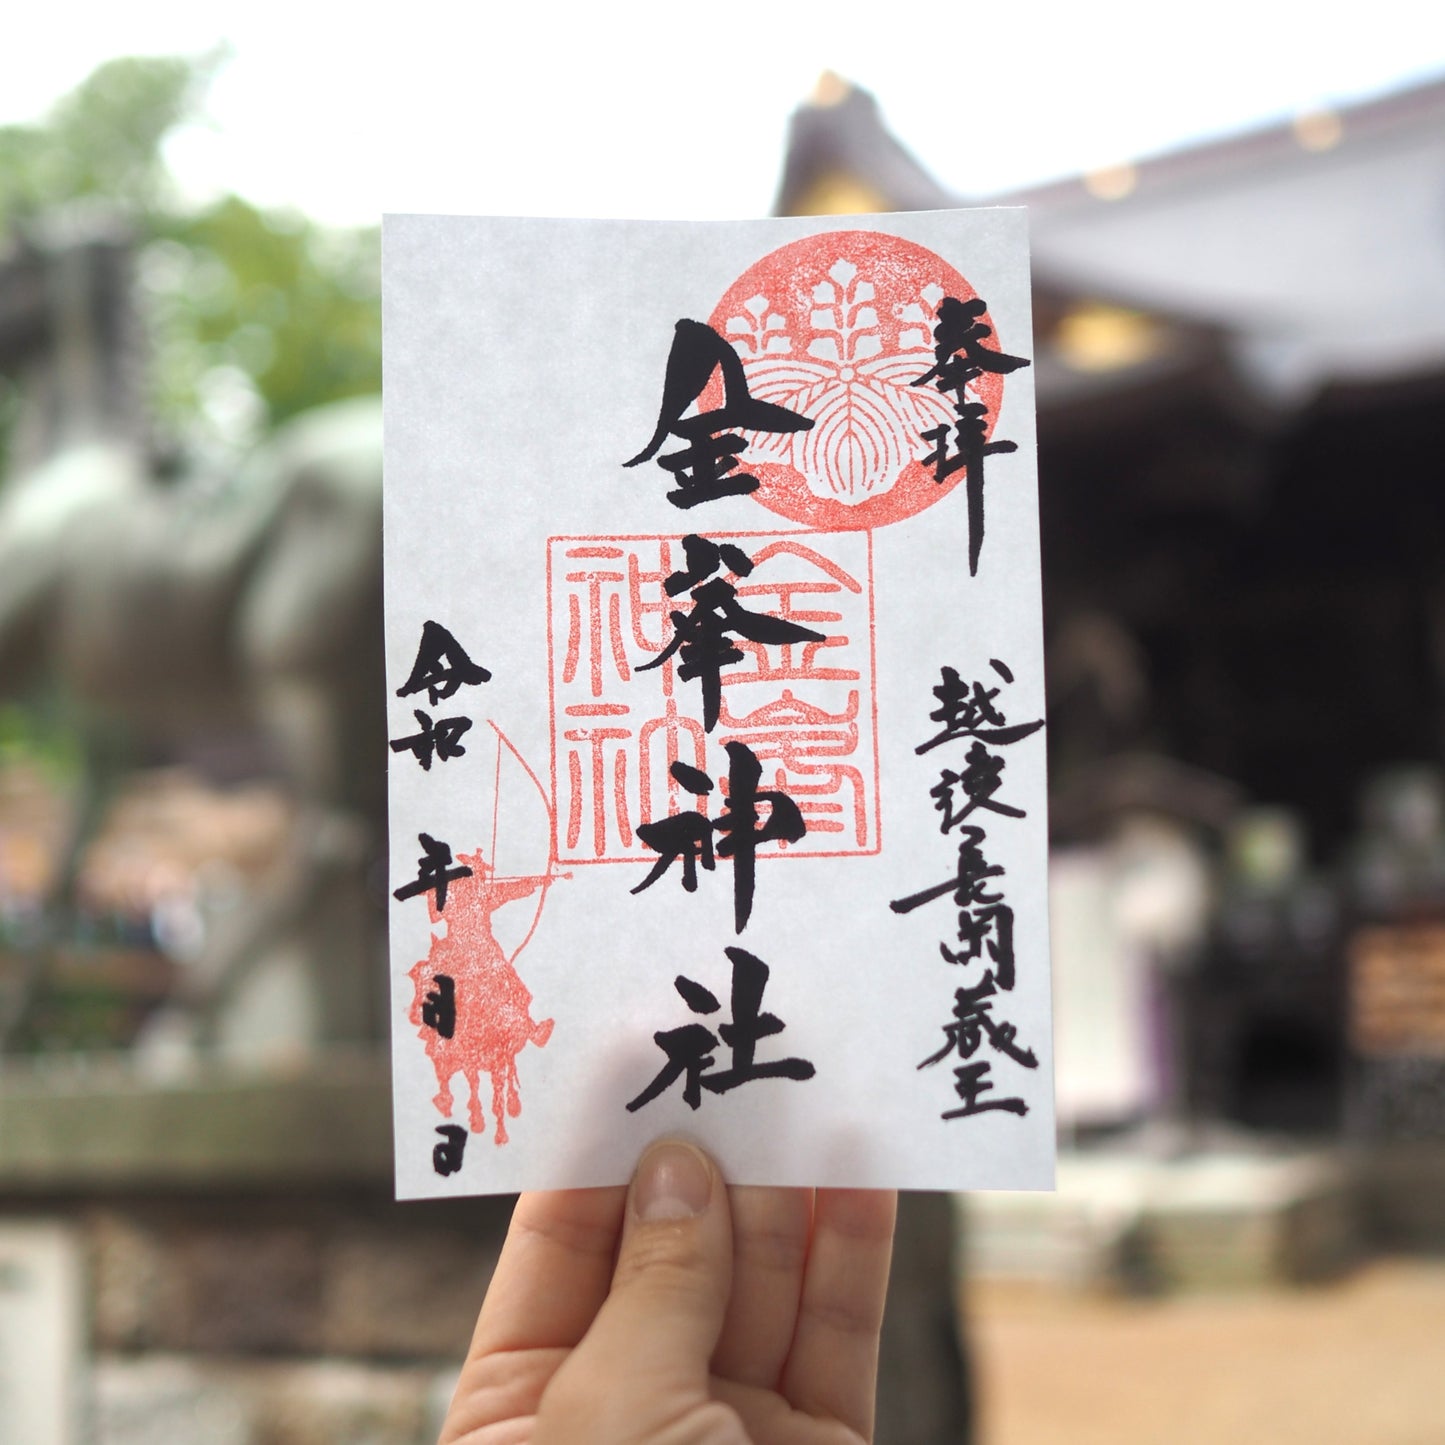 奉拝
越後長岡蔵王
金峯神社
金峯
神社
令和 年 月 日